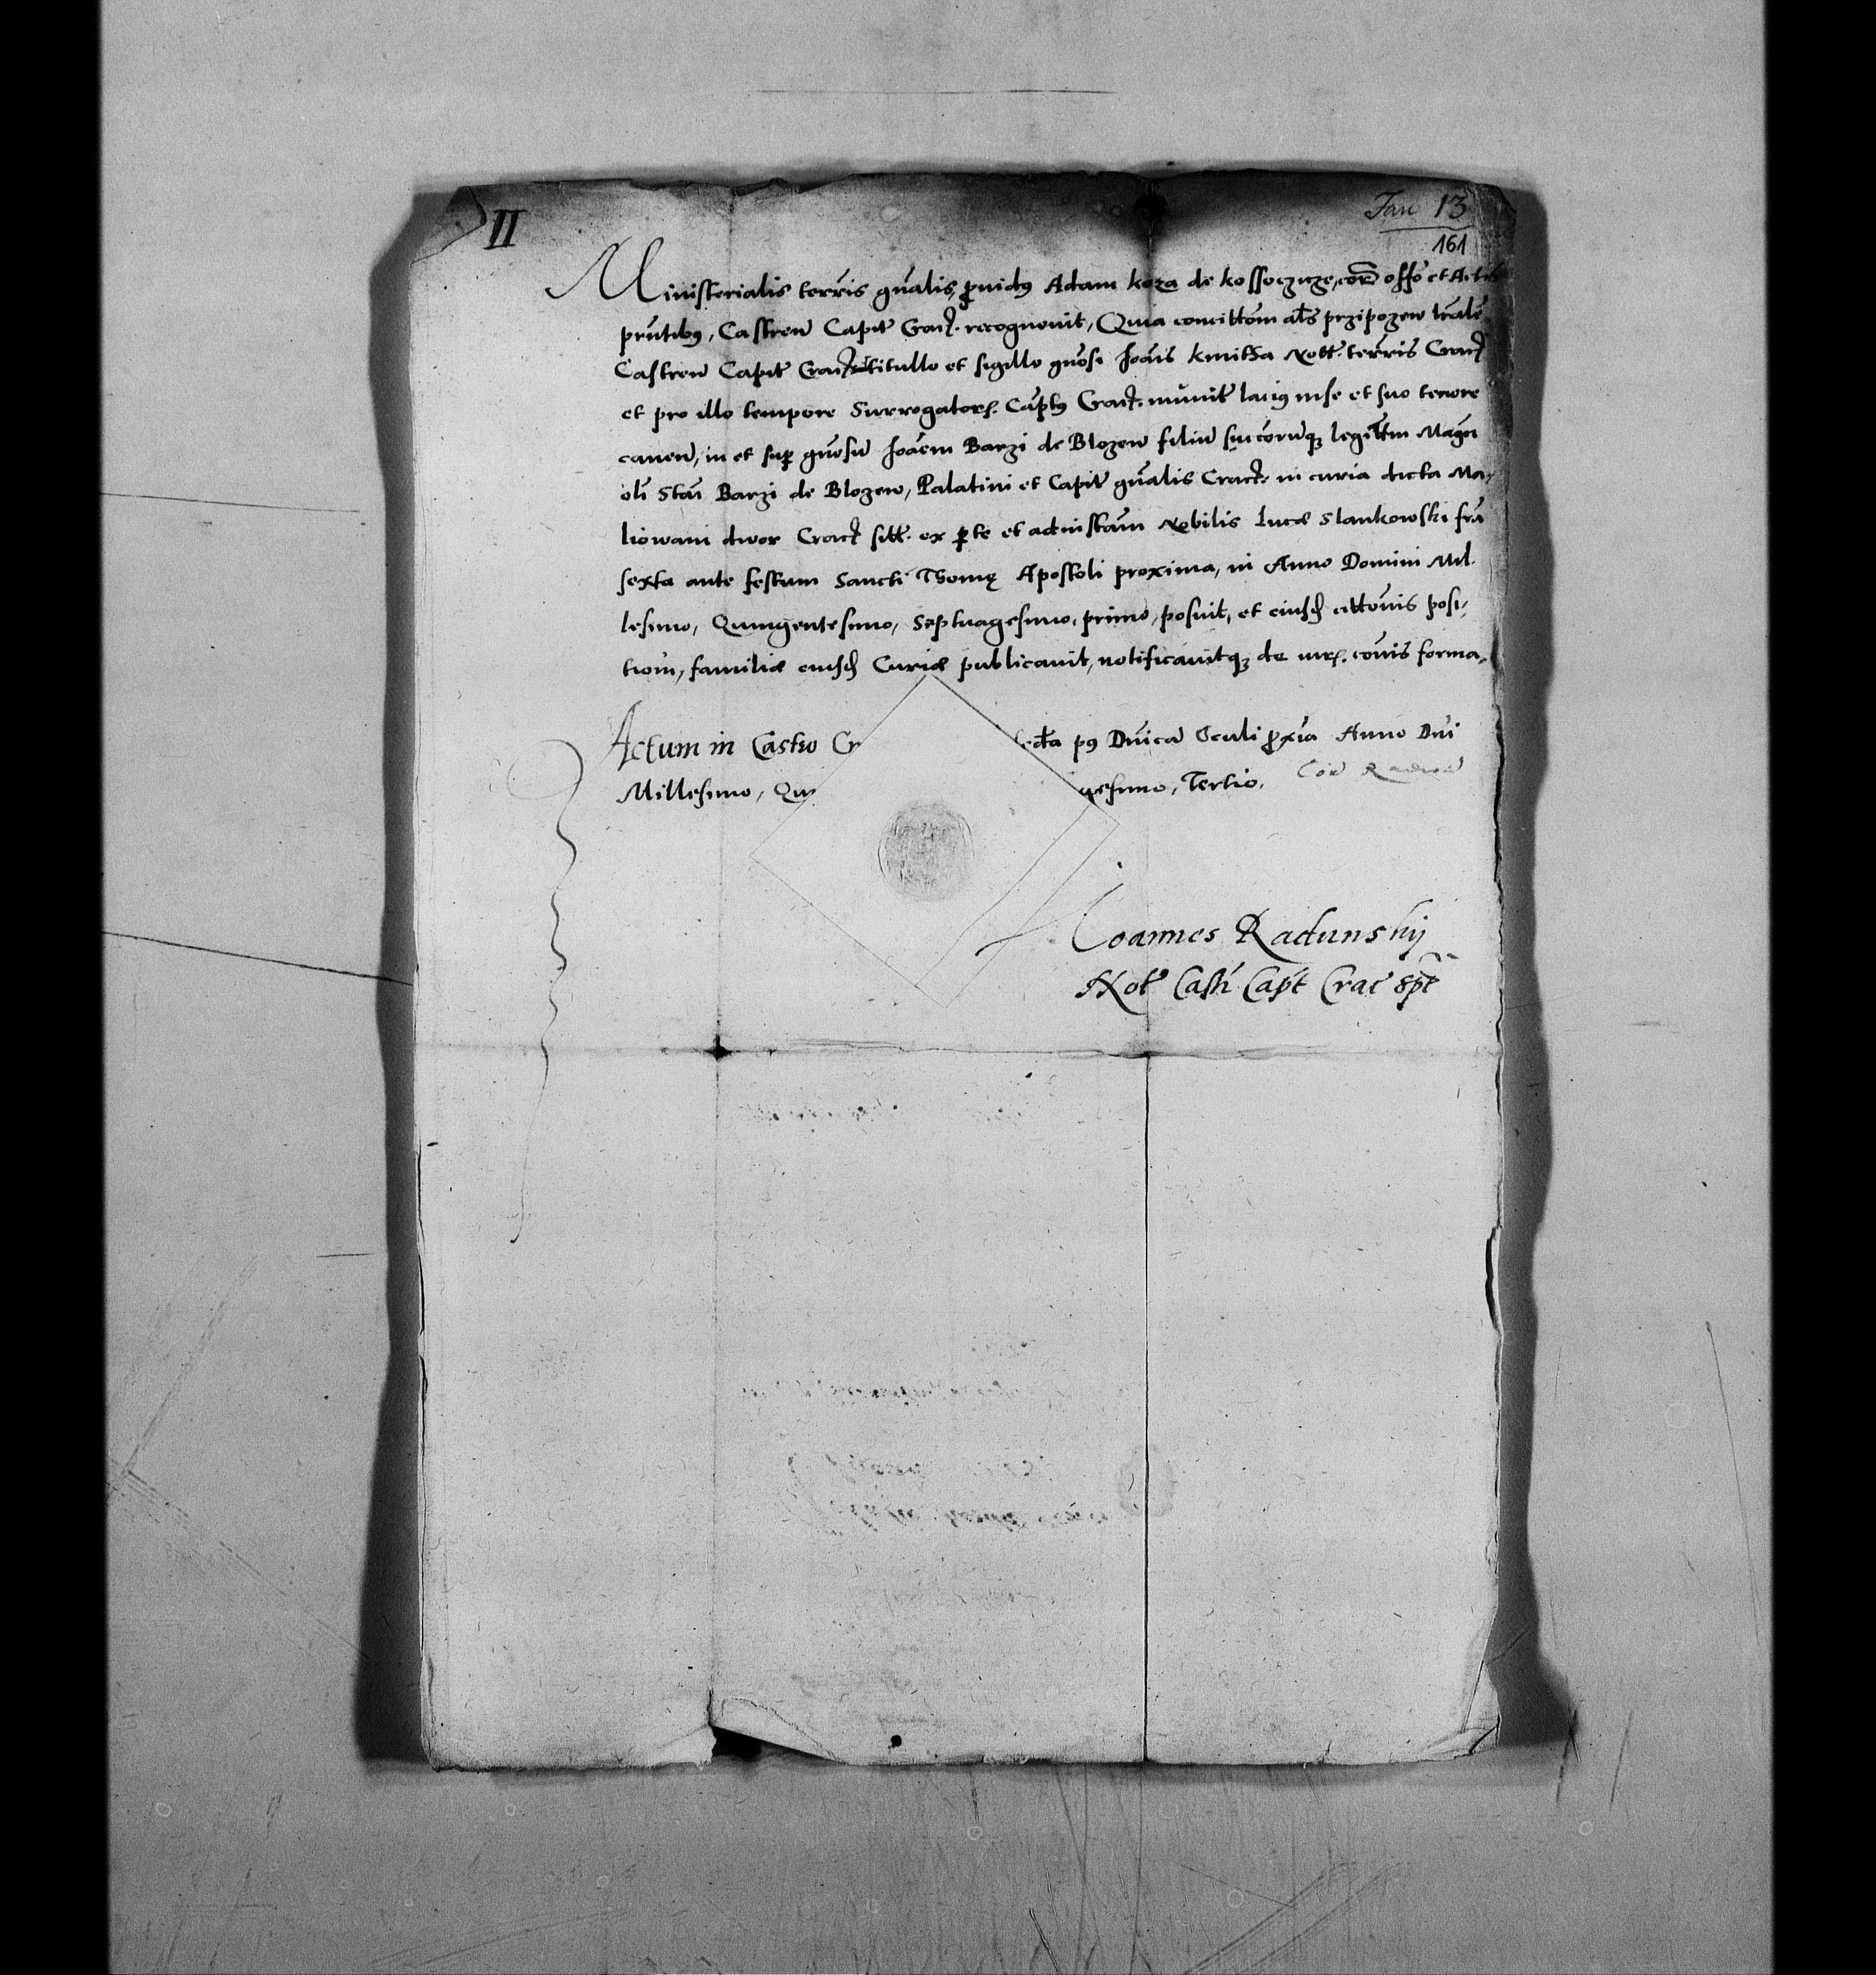 II
Jan 13
161
Ministerialis terrēis gnālis, ꝓuidꝰ Adam koza de kossoczicze, corā offō et Actis
prntībꝰ, Castren Capit Crac̄. recognouit, Quia concittōm als przipozew lrālē
Castren Capit Crac̄ titullo et sigillo gnōsi Joānis kmittha Nott. terrēis Crac̄
et pro illo tempore Surrogatoris Cāptꝰ Crac̄. munit laciꝰ in se et suo tenore
canen, in et suꝑ gnōsū Joāem Barzi de Blozew filiū succorūqꝫ legittim Magci
oli Stāi Barzi de Blozew, Palatini et Capit gnālis Crac̄. in curia dicta Ma,
liowani dwor Crac̄ sitt. ex ꝑte et ad instām Nobilis Lucæ Slankowski frā
sexta ante festum Sancti Thomę Apostoli proxima, in Anno Domini Mil.
lesimo, Quingentesimo, Septuagesimo, primo, posuit, et eiusd cittōnis posi,
tiōm, familiæ eiusd Curiæ publicauit, notificauitqꝫ de iuris cōuis forma,
Actum in Castro Cr pꝰ Dnīcā Oculi ꝓxīa Anno Dnī
Millesimo, Qu gesimo, Tertio.
Joannes Radunskij
Not Castr Capt Crac spt